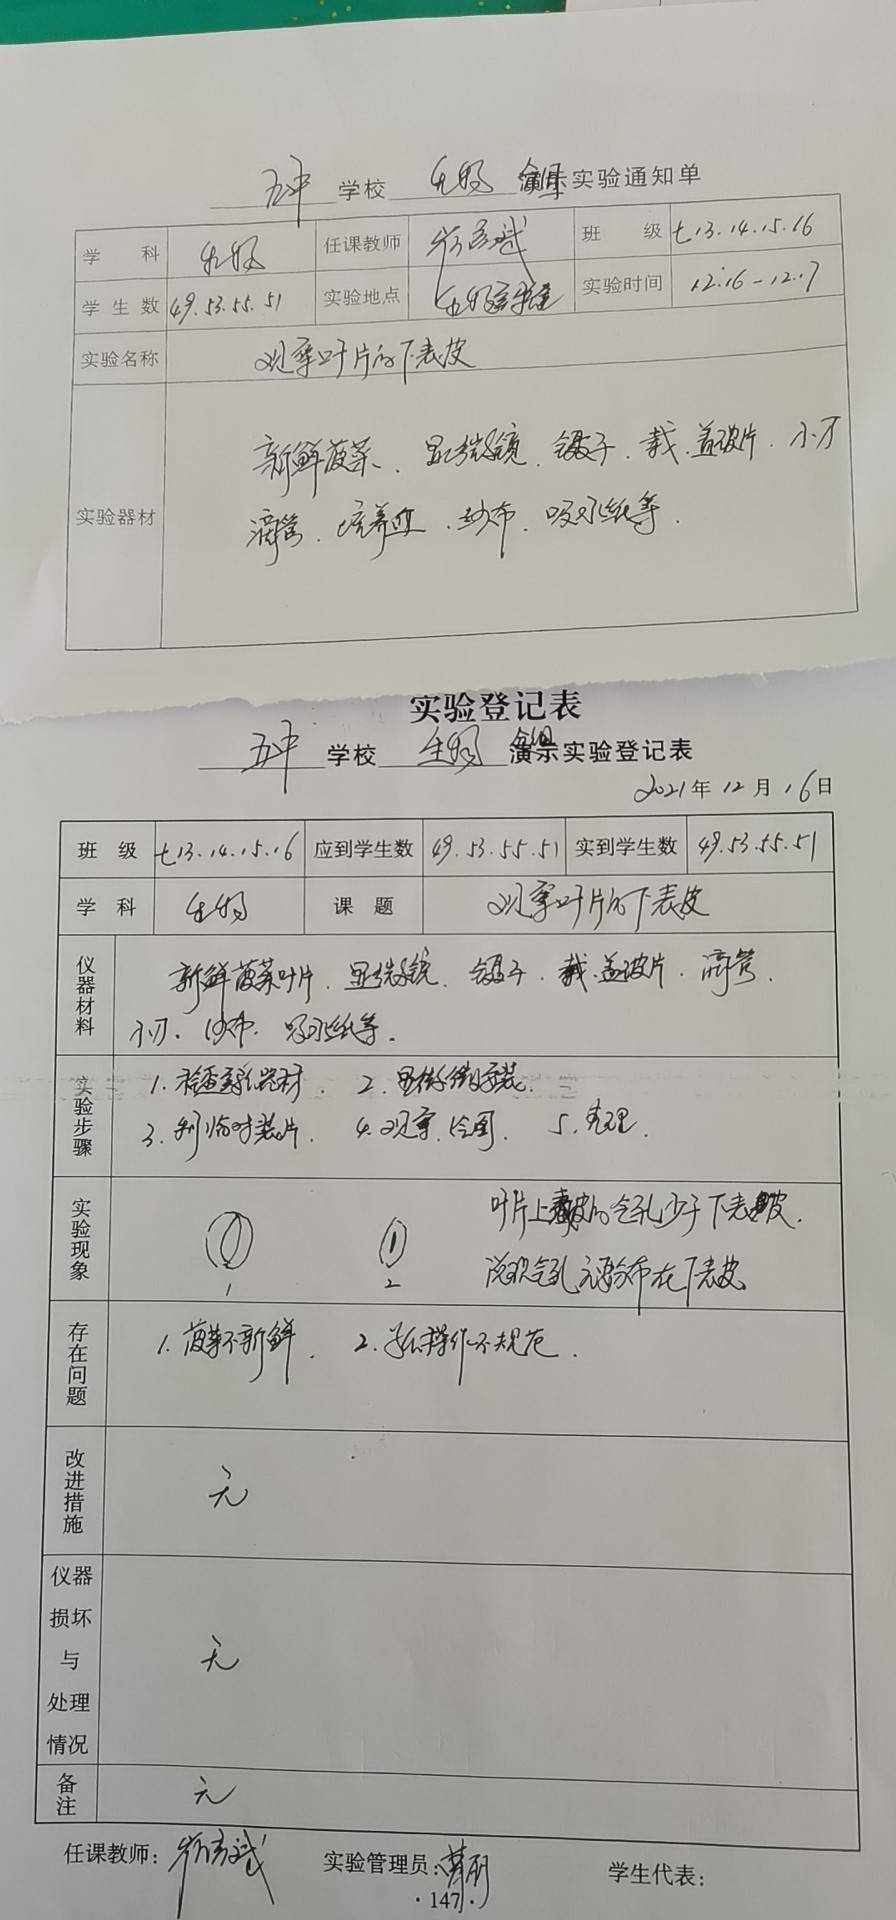 五中学校生物分组实验通知单
学科 生物 任课教师 班级 七13.14.15.16
学生数 49.53.55.51 实验地点 生物实验室 实验时间 12.16-12.17
实验名称 观察叶片的下表皮
实验器材 新鲜菠菜、显微镜、镊子、载.盖玻片.小刀
滴管.培养皿.纱布.吸水纸等.
实验登记表
五中学校生物分组实验登记表
2021年12月16日
班级 七13.14.15.16 应到学生数 49.53.55.51 实到学生数 49.53.55.51
学科 生物 课题 观察叶片的下表皮
仪器材料 新鲜菠菜叶片.显微镜.镊子.载.盖玻片.滴管.
小刀.纱布.吸水纸等.
实验步骤 1.检查实验器材. 2.显微镜安装.
3.制临时装片. 4.观察.绘图. 5.整理.
实验现象 1 2 叶片上表皮的气孔少于下表皮.
说明气孔主要分布在下表皮
存在问题 1.菠菜不新鲜. 2.学生操作不规范.
改进措施 无
仪器损坏与处理情况 无
备注 无
任课教师: 实验管理员: 学生代表:
·147·